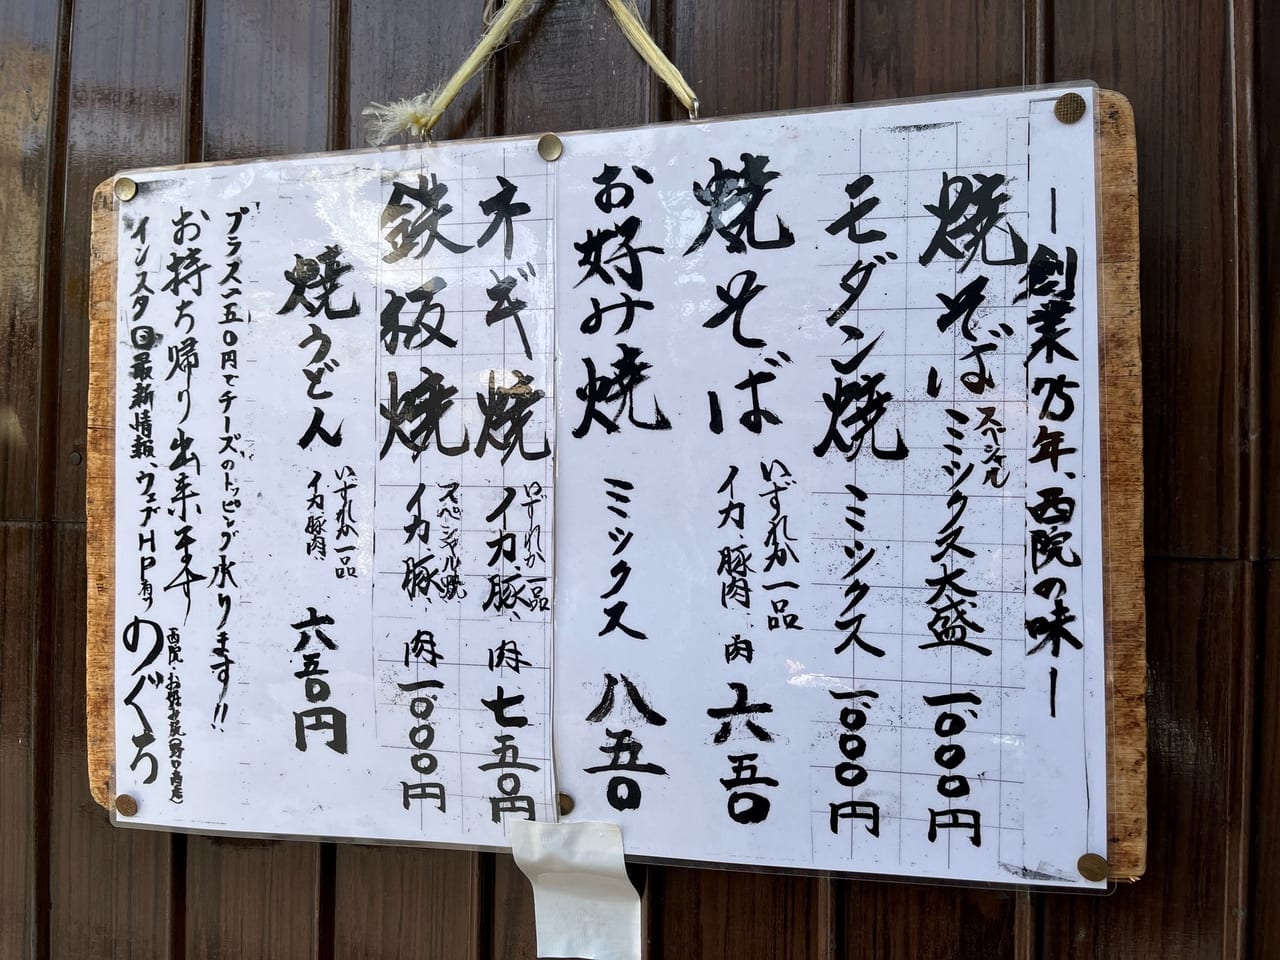 ー創業75年、西院の味ー
焼そば スペシャル ミックス大盛 一、〇〇〇円
モダン焼 ミックス 一、〇〇〇円
焼そば いずれか一品 イカ、豚肉、肉 六五〇
お好み焼 ミックス 八五〇
ネギ焼 いずれか一品 イカ、豚、肉 七五〇円
鉄板焼 スペシャル焼 イカ、豚、肉 一、〇〇〇円
焼うどん いずれか一品 イカ、豚肉、 六五〇円
プラス一五〇円でチーズのトッピング承ります!!
お持ち帰り出来ます
インスタ 最新情報、ウェブHP有り
西院・お好み焼(野口商店)
のぐち